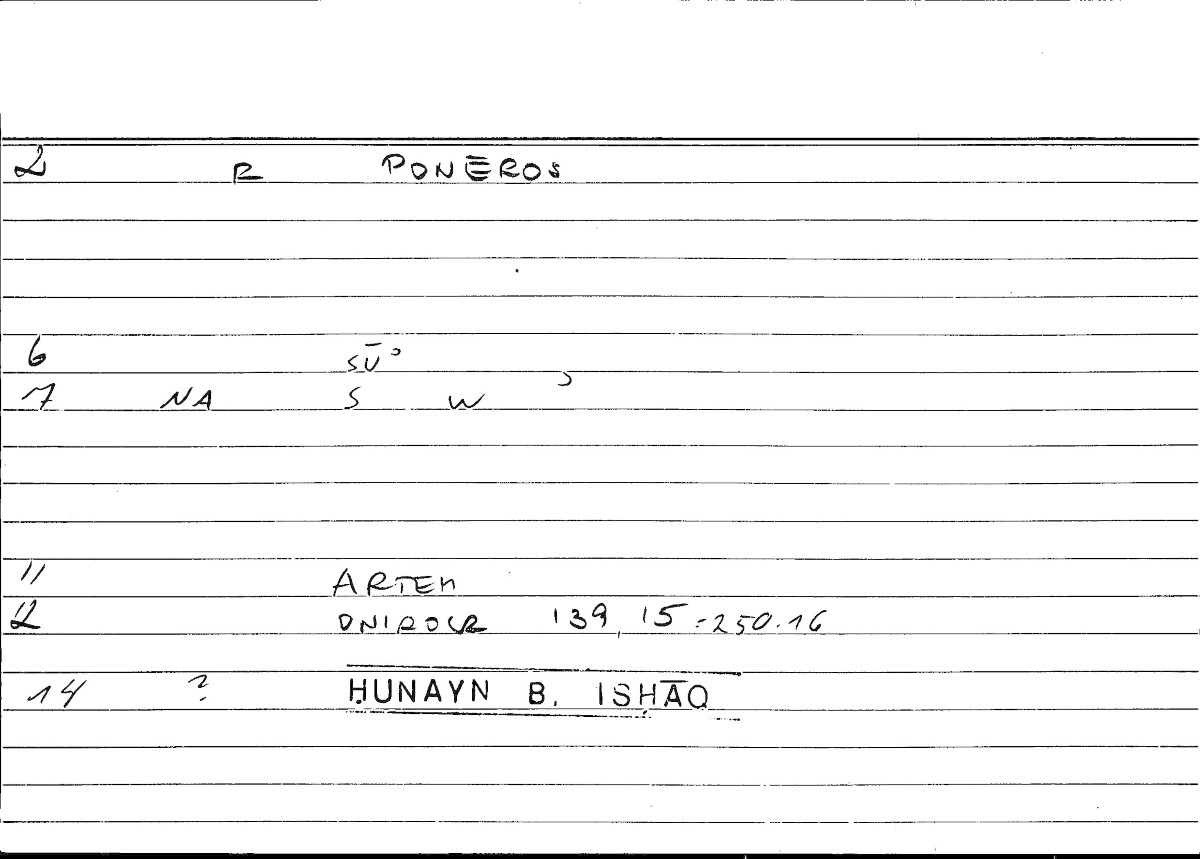 2 R PONĒROS
6 SŪʾ
7 NA S W ʾ
11 ARTEM
12 ONIROCR 139,15 = 250.16
14 ? ḤUNAYN B. ISḤĀQ